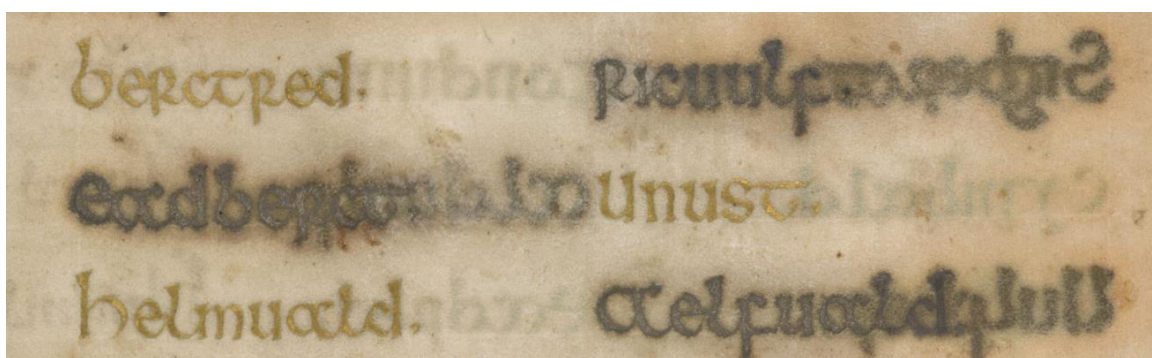 berctred. ricuulf
eadberct unust.
helmuald. aelfuald